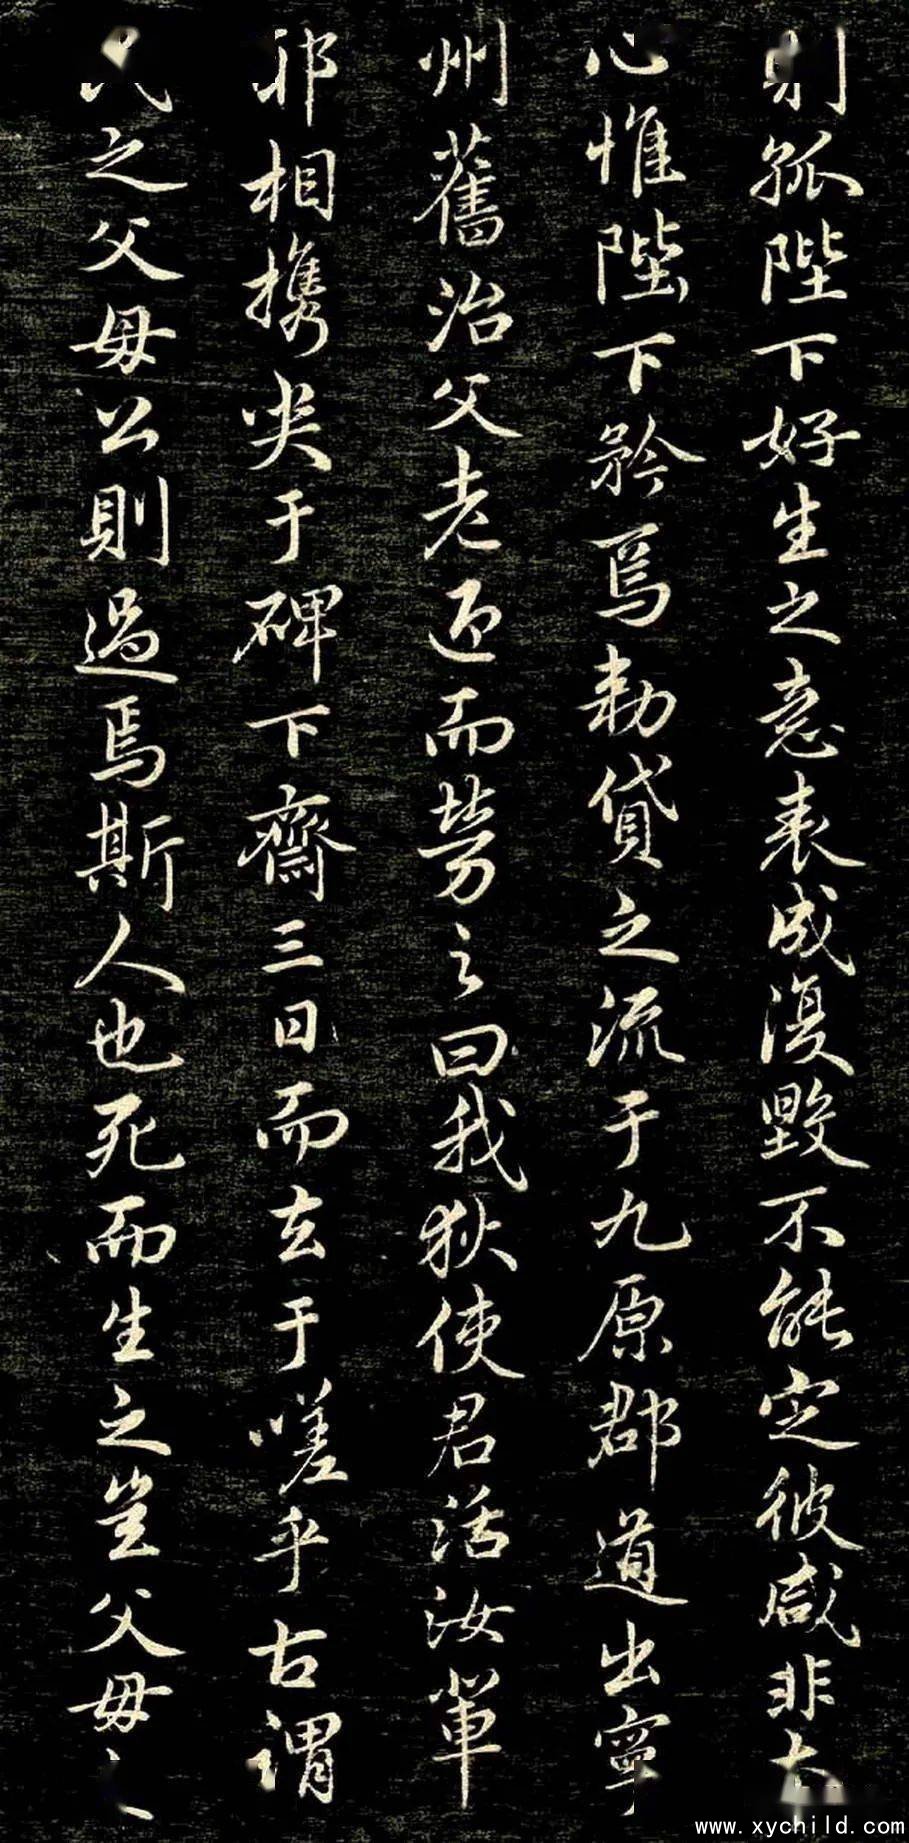 則孤陛下好生之意表成復毀不能定彼咸非本
心惟陛下矜焉勑貸之流于九原郡道出寧
州舊治父老迎而勞之曰我狄使君活汝輩
耶相攜哭于碑下齋三日而去于嗟乎古謂
民之父母公則過焉斯人也死而生之豈父母之
www.xychild.com